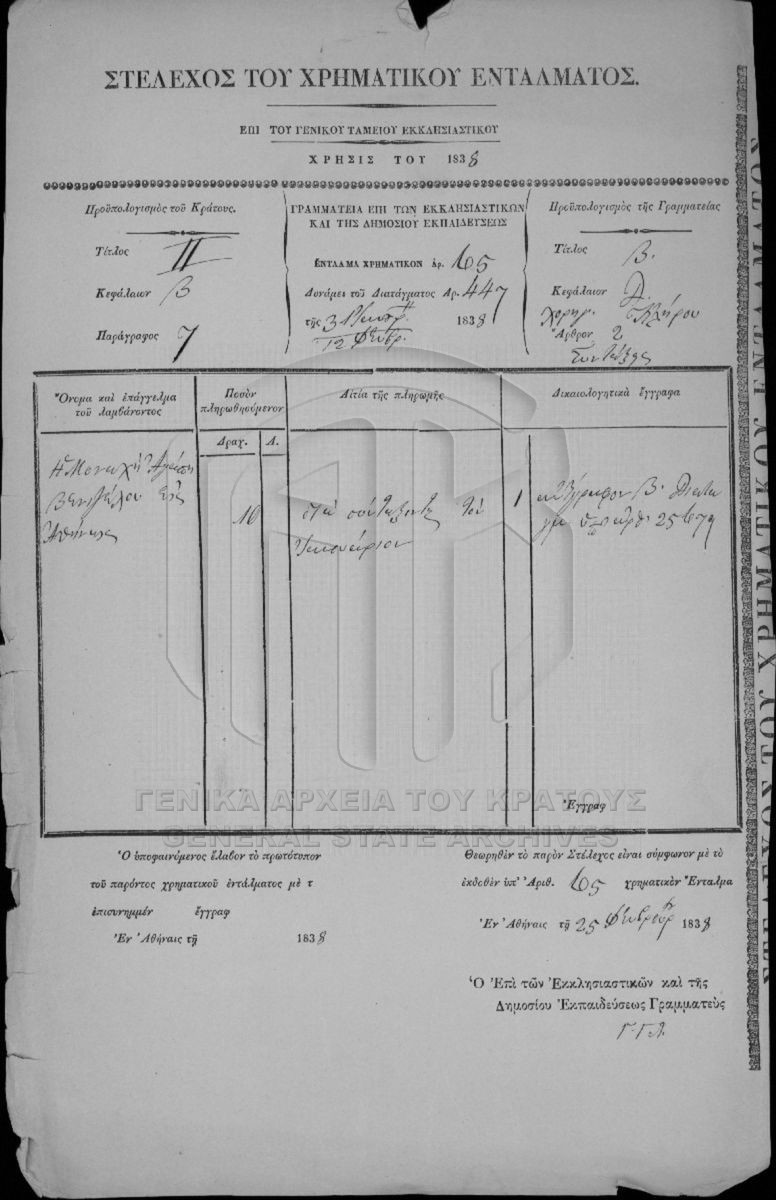 ΣΤΕΛΕΧΟΣ ΤΟΥ ΧΡΗΜΑΤΙΚΟΥ ΕΝΤΑΛΜΑΤΟΣ.
ΕΠΙ ΤΟΥ ΓΕΝΙΚΟΥ ΤΑΜΕΙΟΥ ΕΚΚΛΗΣΙΑΣΤΙΚΟΥ
ΧΡΗΣΙΣ ΤΟΥ 1838
Προϋπολογισμὸς τοῦ Κράτους.
Τίτλος II
Κεφάλαιον Β
Παράγραφος 7
ΓΡΑΜΜΑΤΕΙΑ ΕΠΙ ΤΩΝ ΕΚΚΛΗΣΙΑΣΤΙΚΩΝ
ΚΑΙ ΤΗΣ ΔΗΜΟΣΙΟΥ ΕΚΠΑΙΔΕΥΣΕΩΣ
ΕΝΤΑΛΜΑ ΧΡΗΜΑΤΙΚΟΝ ἀρ. 165
Δυνάμει τοῦ Διατάγματος Ἀρ. 447
τῆς 3 1838
12 Φεβρ.
Προϋπολογισμὸς τῆς Γραμματείας
Τίτλος Β.
Κεφάλαιον
Χορηγ. Κλήρου
Ἄρθρον 2
Συντάξεις
Ὄνομα καὶ ἐπάγγελμα
τοῦ λαμβάνοντος
Ποσὸν
πληρωθησόμενον
Δραχ. Λ.
Αἰτία τῆς πληρωμῆς
Δικαιολογητικὰ ἔγγραφα
Ἡ Μοναχὴ
Βενιζέλου εἰς
Ἀθήνας
10
διὰ σύνταξιν τοῦ
Ἰανουάριον
1
ἀντίγραφον Β. Διατά
ὑπ ἀρθ. 25679
Ἐγγραφ
ΓΕΝΙΚΑ ΑΡΧΕΙΑ ΤΟΥ ΚΡΑΤΟΥΣ
GENERAL STATE ARCHIVES
Ὁ ὑποφαινόμενος ἔλαβον τὸ πρωτότυπον
τοῦ παρόντος χρηματικοῦ ἐντάλματος μὲ τ
ἐπισυνημμέν ἔγγραφ
Ἐν Ἀθήναις τῇ 1838
Θεωρηθὲν τὸ παρὸν Στέλεχος εἶναι σύμφωνον μὲ τὸ
ἐκδοθὲν ὑπ' Ἀριθ. 165 χρηματικὸν Ἔνταλμα
Ἐν Ἀθήναις τῇ 25 Φεβρουαρ 1838
Ὁ Ἐπὶ τῶν Ἐκκλησιαστικῶν καὶ τῆς
Δημοσίου Ἐκπαιδεύσεως Γραμματεὺς
Γ. Γ. Λ.
ΣΤΕΛΕΧΟΣ ΤΟΥ ΧΡΗΜΑΤΙΚΟΥ ΕΝΤΑΛΜΑΤΟΣ